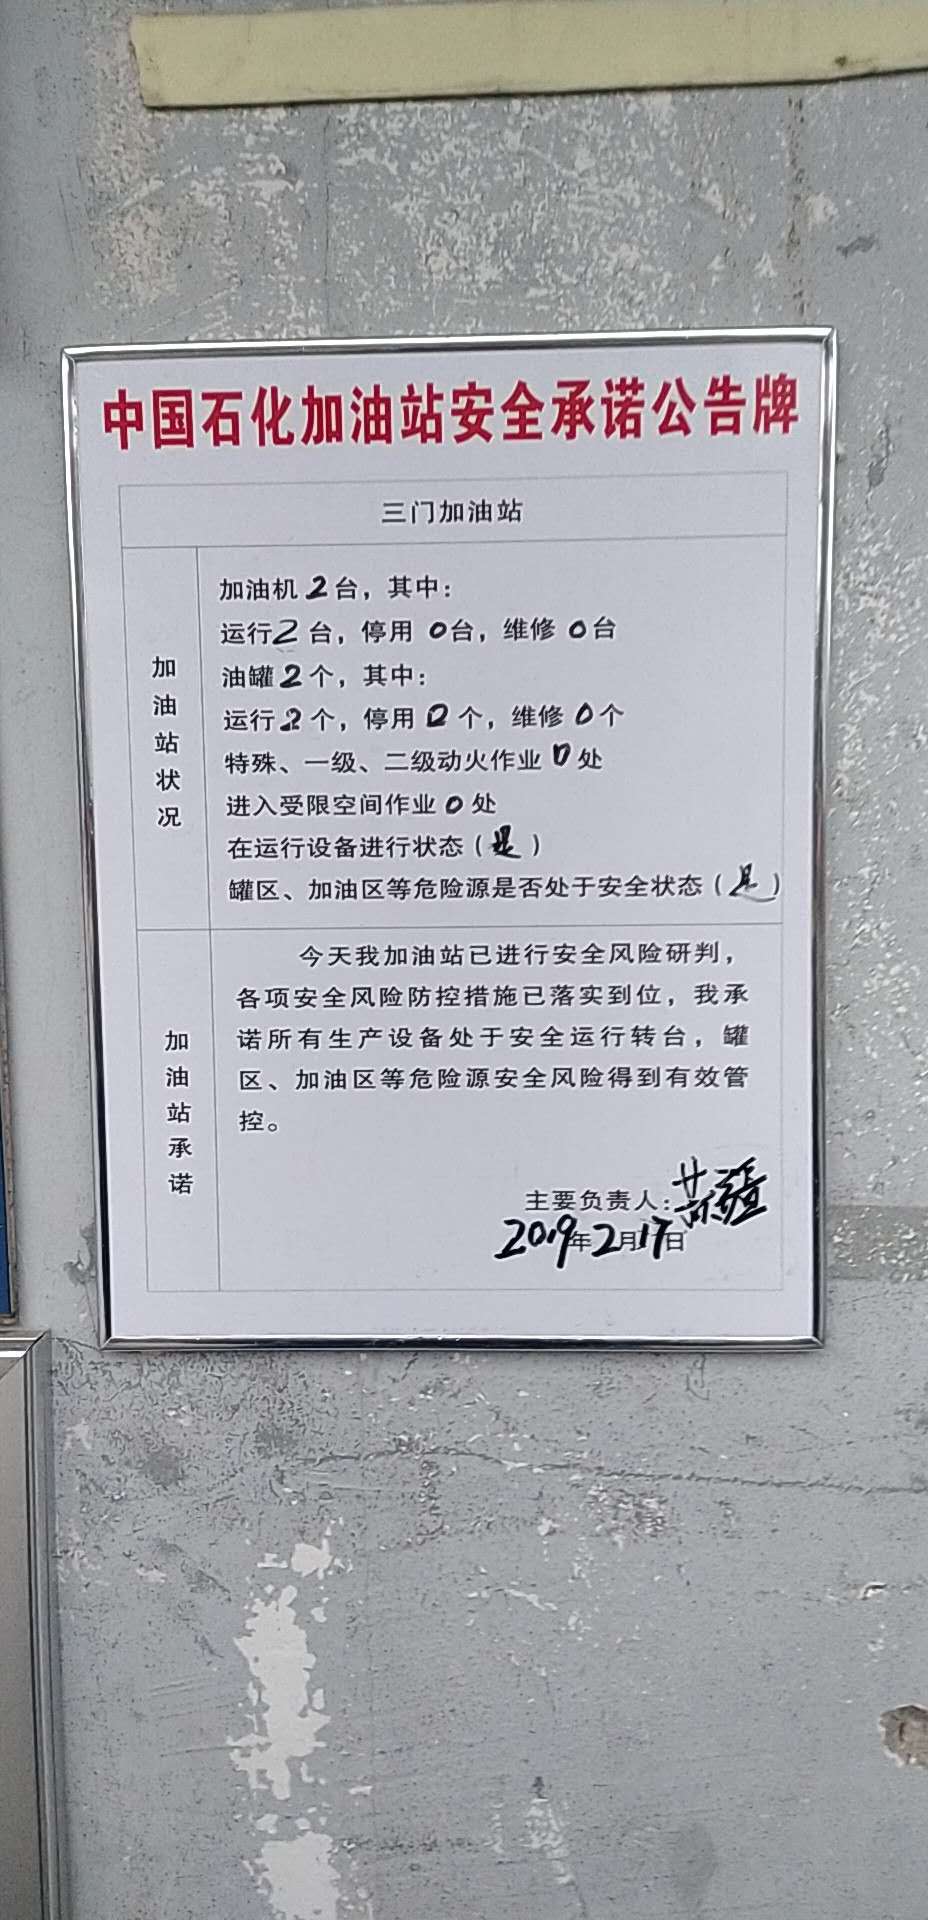 中国石化加油站安全承诺公告牌
三门加油站
加油站状况
加油机2台，其中：
运行2台，停用0台，维修0台
油罐2个，其中：
运行2个，停用0个，维修0个
特殊、一级、二级动火作业0处
进入受限空间作业0处
在运行设备进行状态（是）
罐区、加油区等危险源是否处于安全状态（是）
加油站承诺
今天我加油站已进行安全风险研判，
各项安全风险防控措施已落实到位，我承
诺所有生产设备处于安全运行转台，罐
区、加油区等危险源安全风险得到有效管
控。
主要负责人：
2019年2月17日